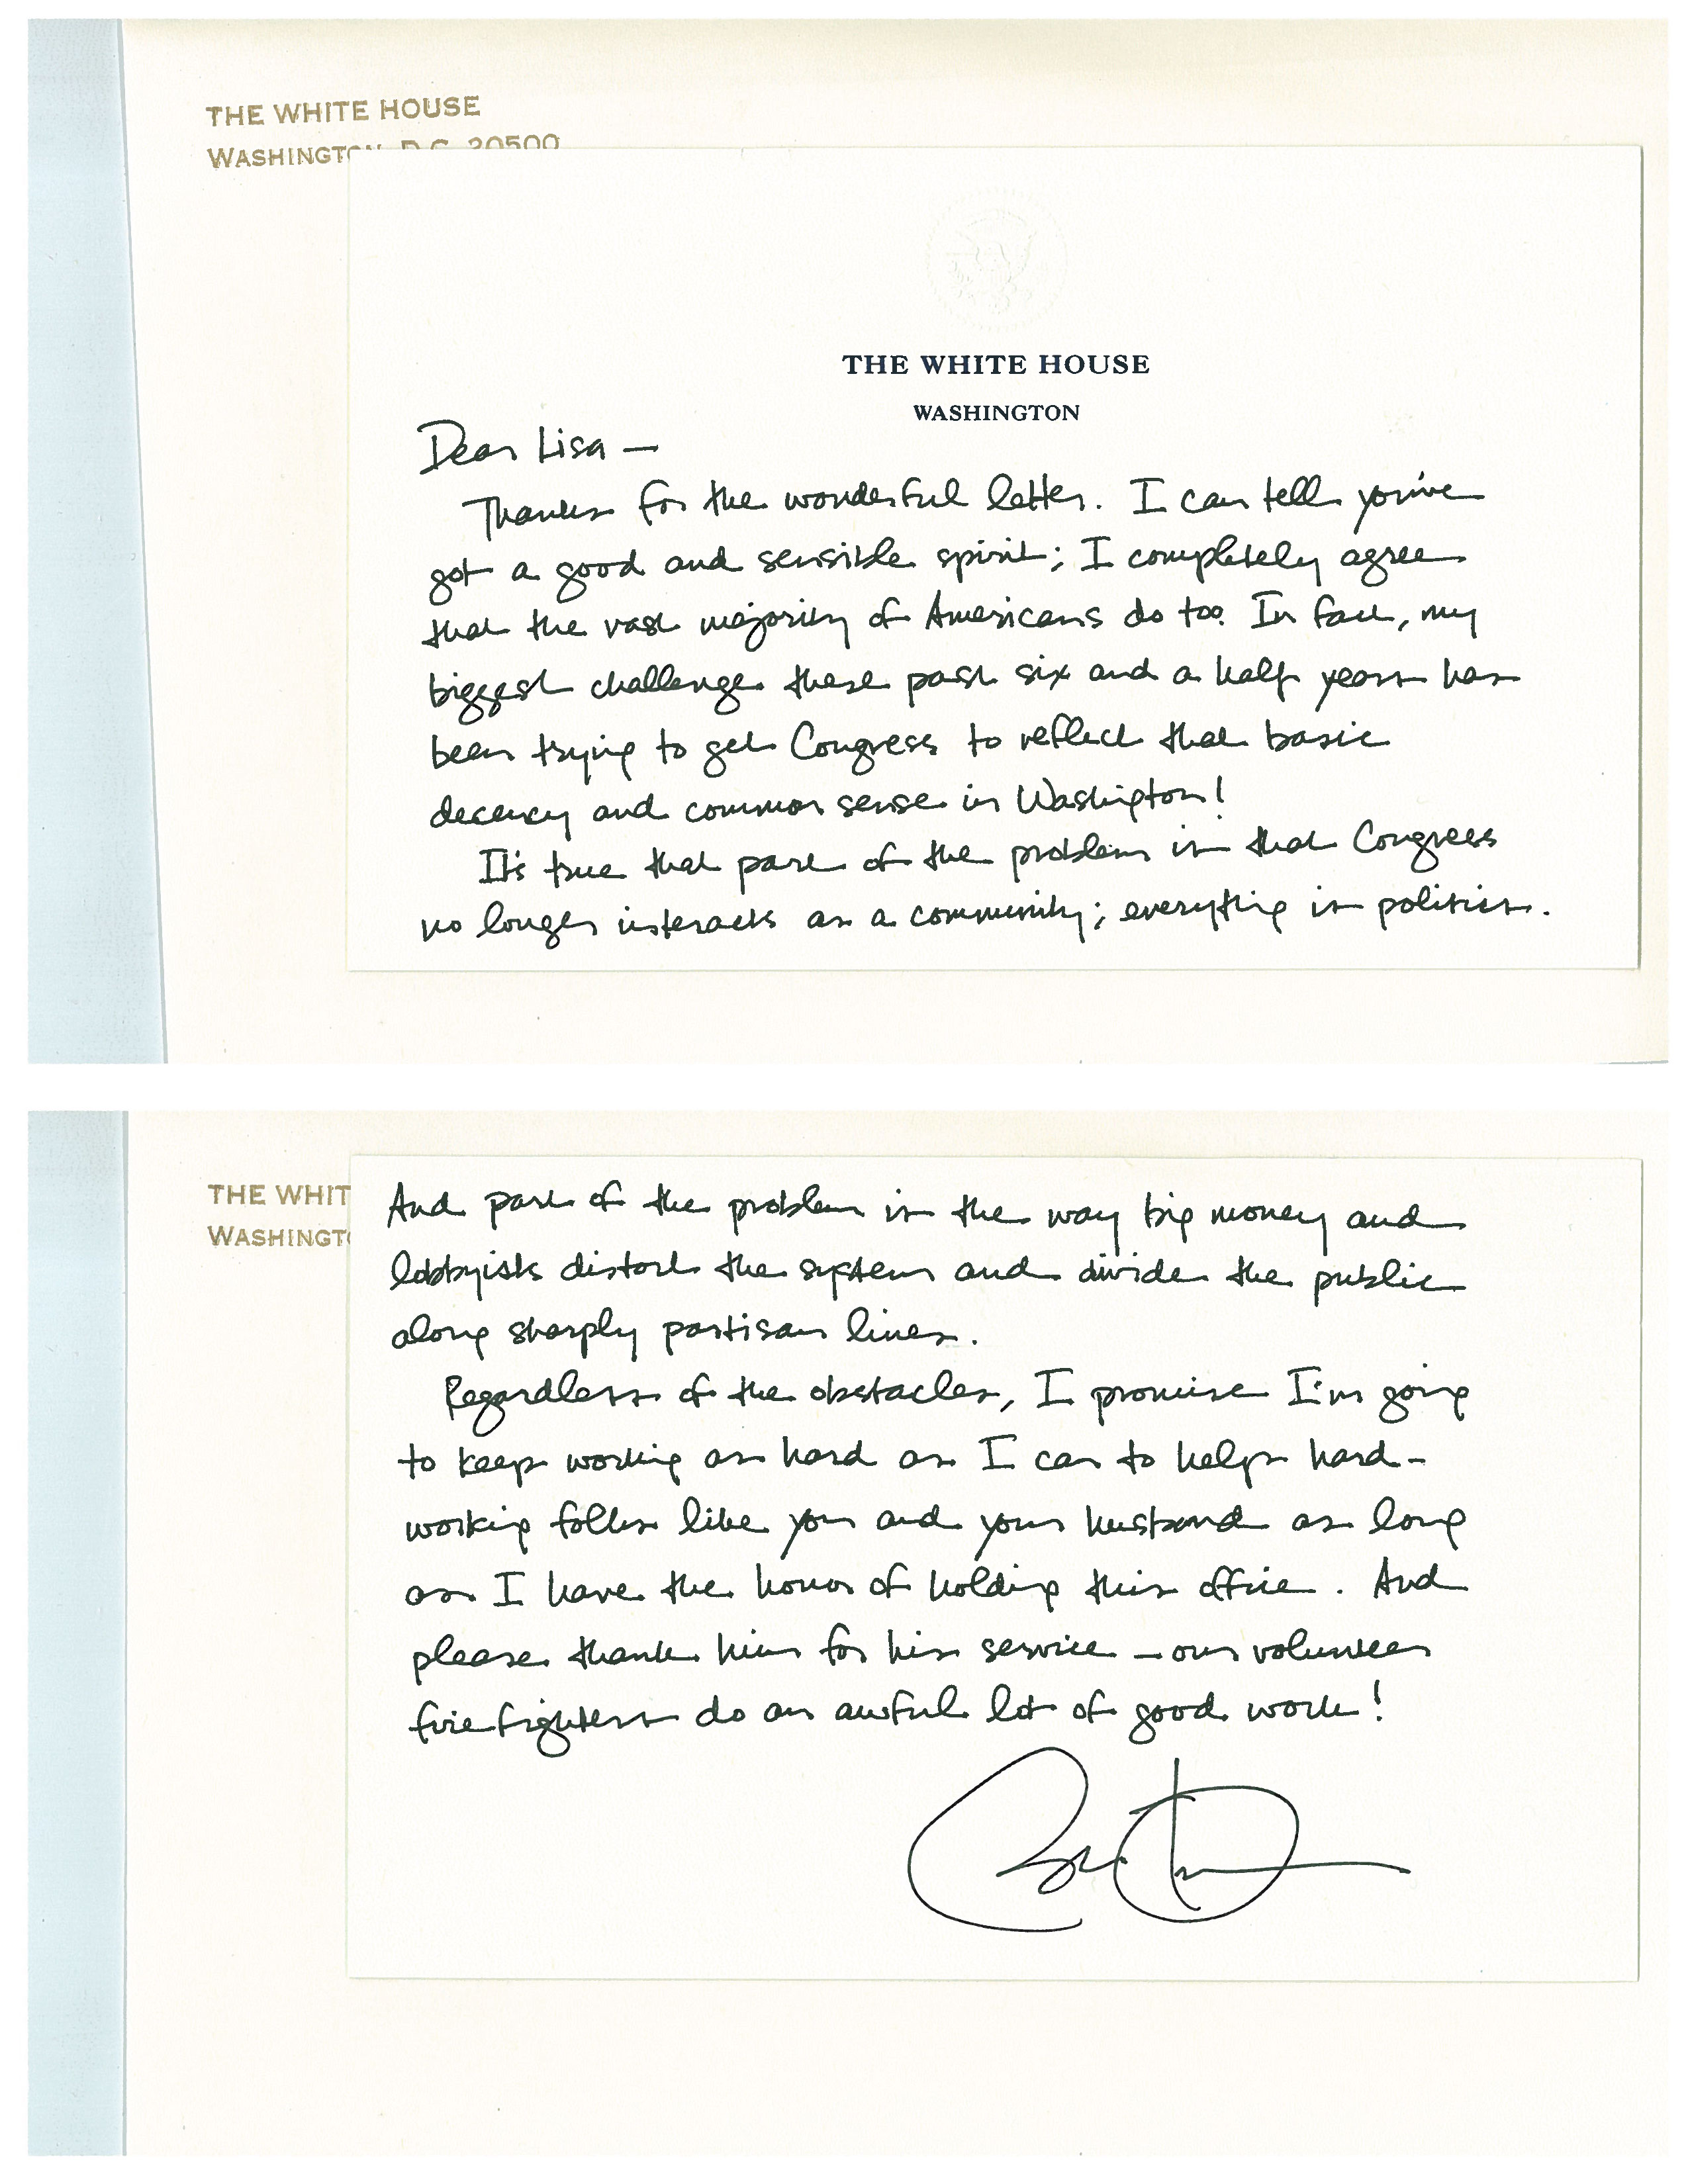 THE WHITE HOUSE
WASHINGTON, D.C. 20500
THE WHITE HOUSE
WASHINGTON
Dear Lisa —
Thanks for the wonderful letter. I can tell you've
got a good and sensible spirit; I completely agree
that the vast majority of Americans do too. In fact, my
biggest challenge these past six and a half years has
been trying to get Congress to reflect that basic
decency and common sense in Washington!
It's true that part of the problem is that Congress
no longer interacts as a community; everything is politics.
THE WHIT
WASHINGTO
And part of the problem is the way big money and
lobbyists distort the system and divide the public
along sharply partisan lines.
Regardless of the obstacles, I promise I'm going
to keep working as hard as I can to help hard-
working folks like you and your husband as long
as I have the honor of holding this office. And
please thank him for his service – our volunteer
firefighters do an awful lot of good work!